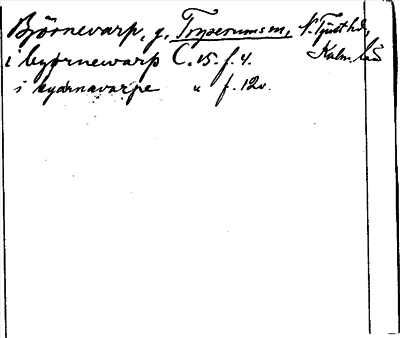 Björnevarp, g. Tryserums sn, N. Tjust hd,
Kalm. län
i byørnewarp C. 15. f. 4.
i byørnavarpe " f. 12v.